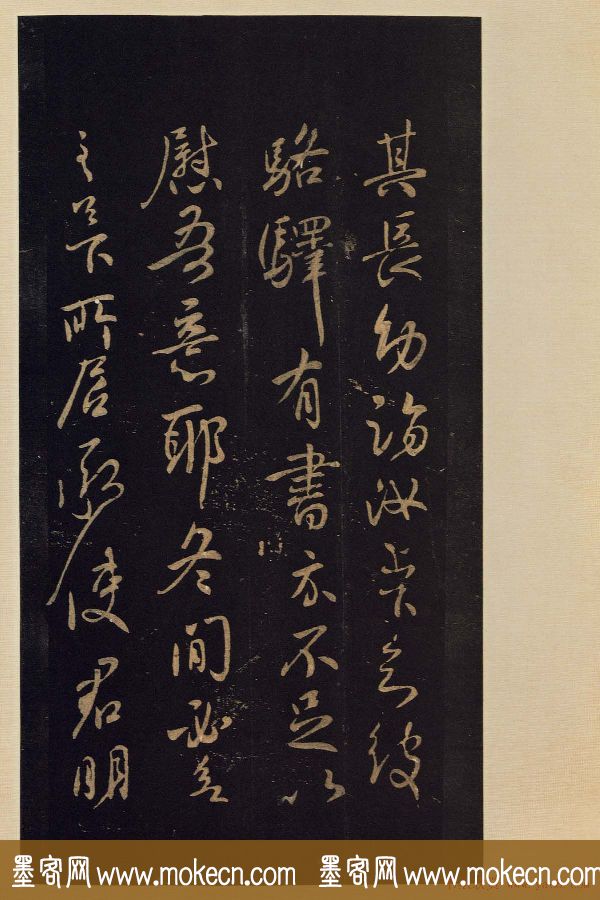 其長幼詣汝彼
駱驛有書亦不足以
慰吾意耶冬間必
所居承使君明
墨客网 www.mokecn.com 墨客网 www.mokecn.com